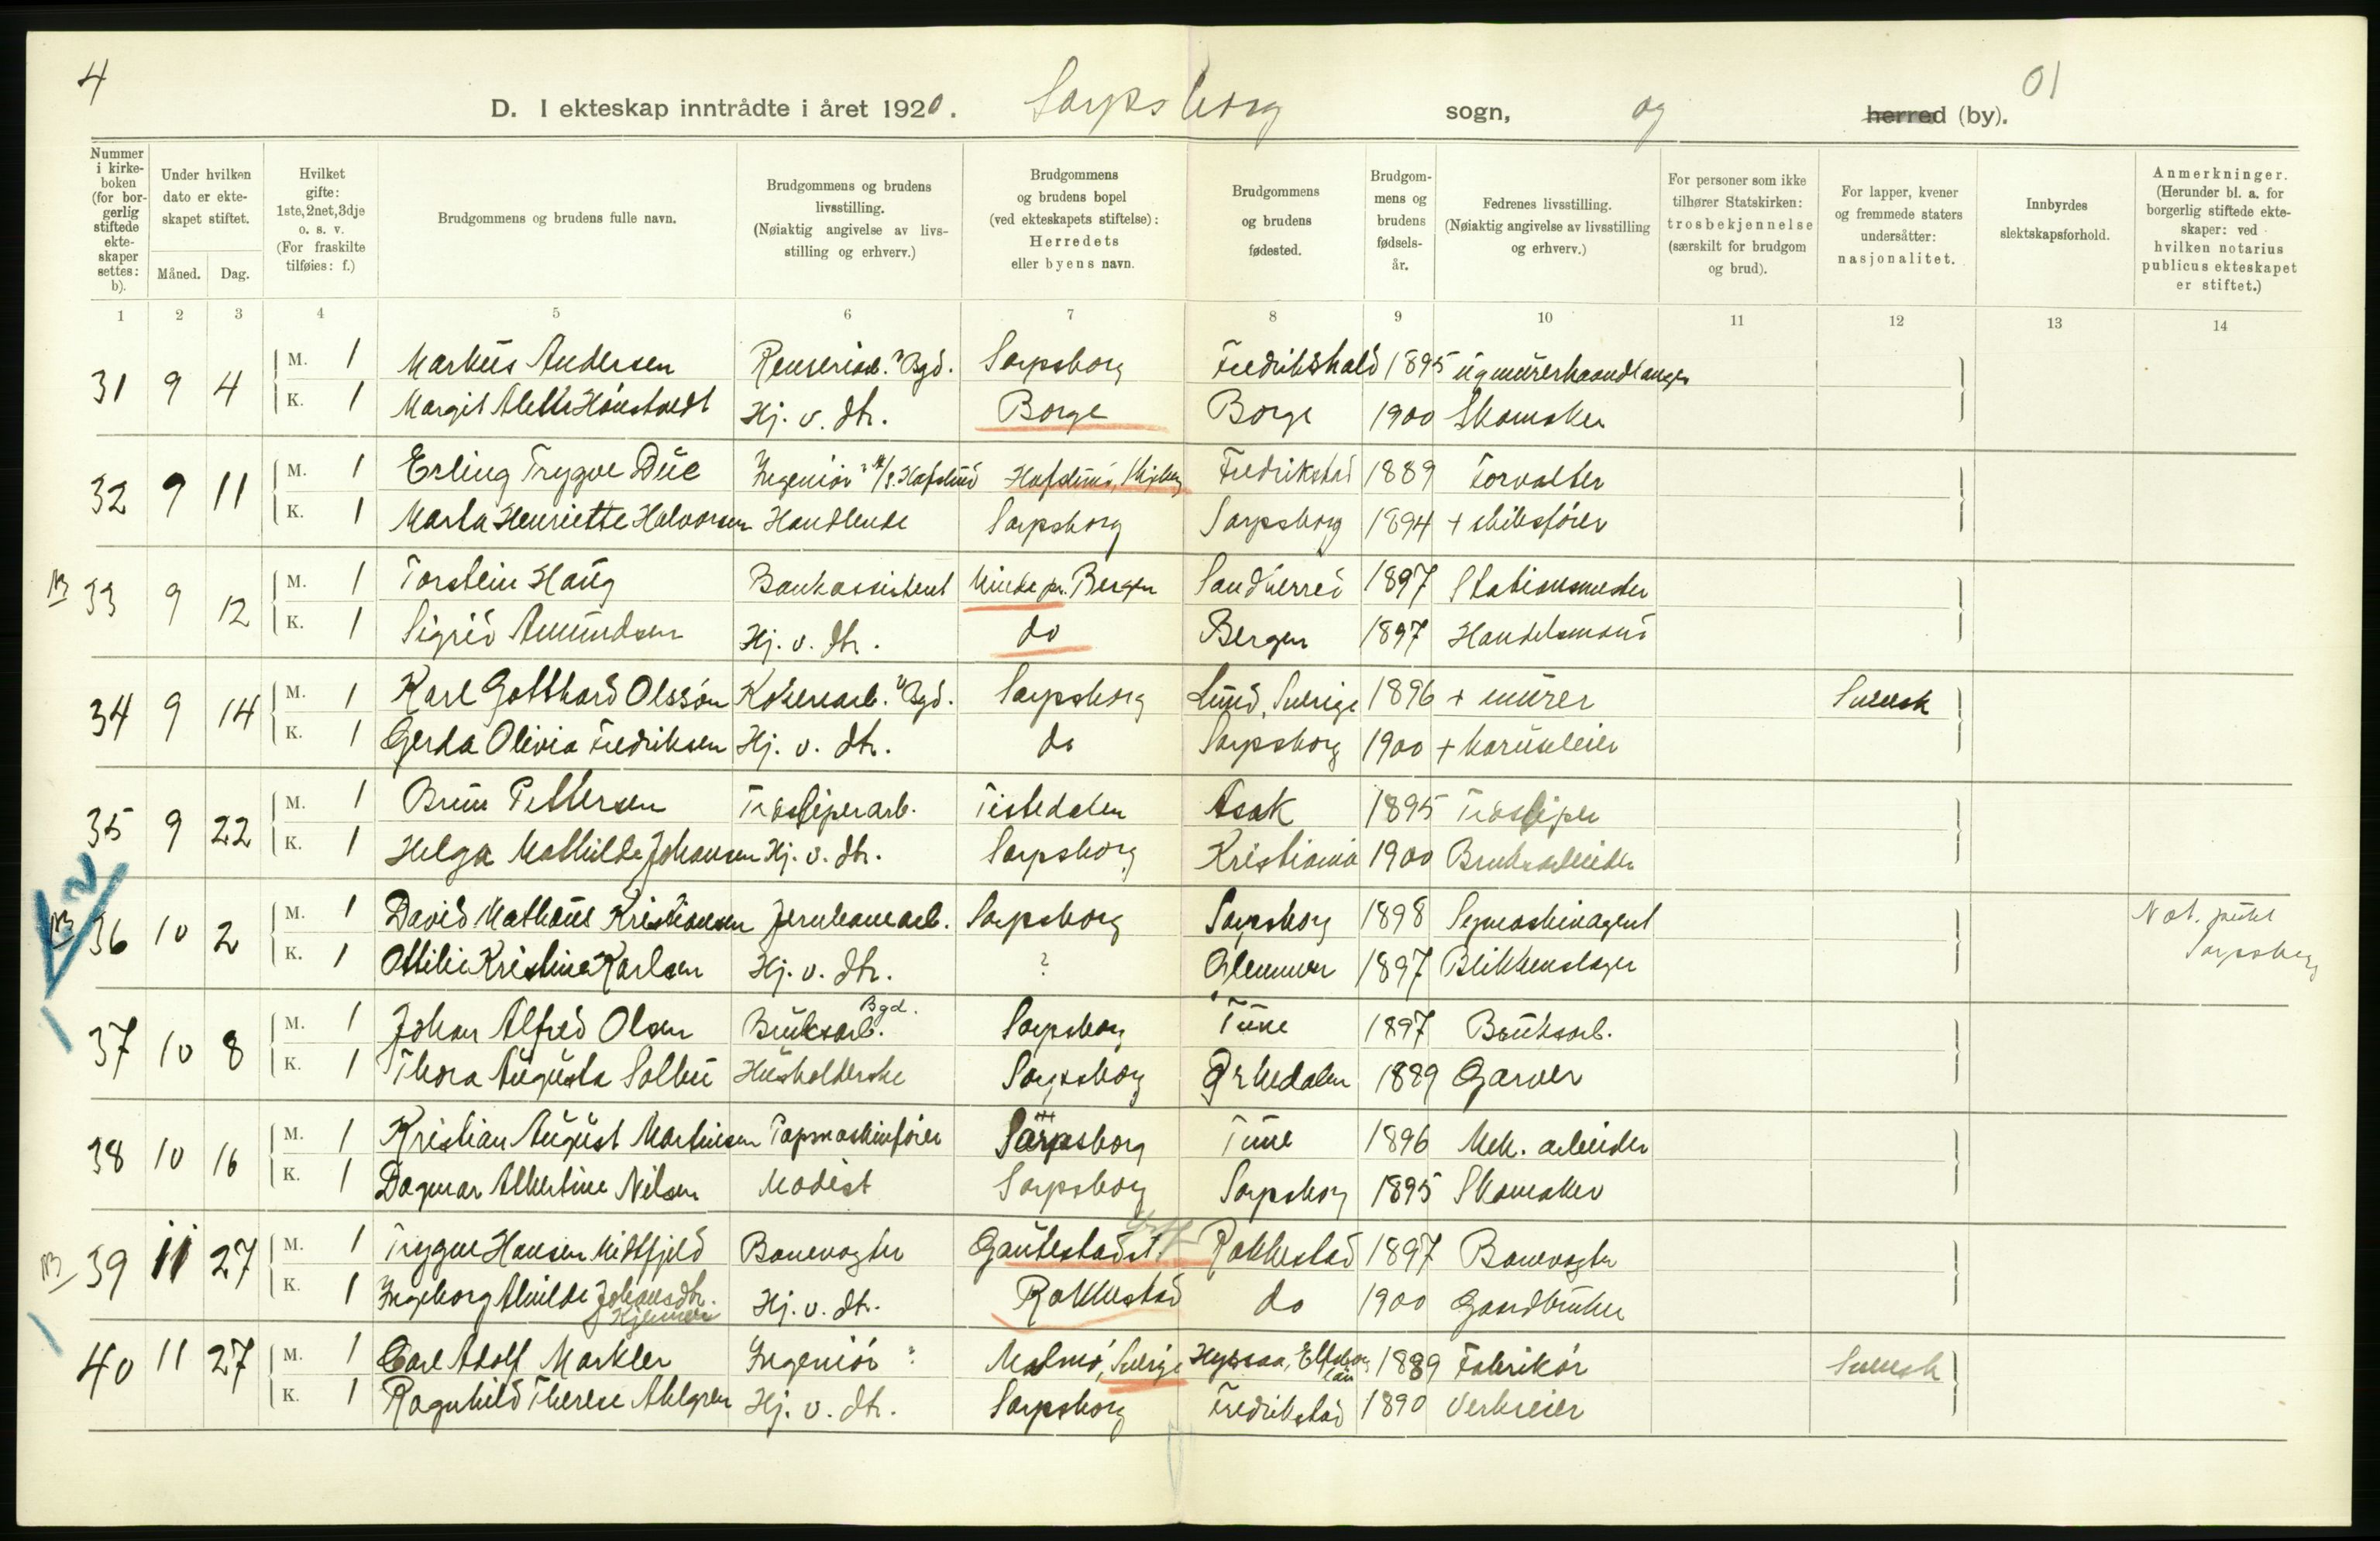 4
01
D. I ekteskap inntrådte i året 1920. Sarpsborg sogn, og herred (by).
Nummer i kirkeboken (for borgerlig stiftede ekteskaper settes: b).
Under hvilken dato er ekteskapet stiftet.
Måned. Dag.
Hvilket gifte: 1ste, 2net, 3dje o. s. v. (For fraskilte tilføies: f.)
Brudgommens og brudens fulle navn.
Brudgommens og brudens livsstilling. (Nøiaktig angivelse av livsstilling og erhverv.)
Brudgommens og brudens bopel (ved ekteskapets stiftelse): Herredets eller byens navn.
Brudgommens og brudens fødested.
Brudgommens og brudens fødselsår.
Fedrenes livsstilling. (Nøiaktig angivelse av livsstilling og erhverv.)
For personer som ikke tilhører Statskirken: trosbekjennelse (særskilt for brudgom og brud).
For lapper, kvener og fremmede staters undersåtter: nasjonalitet.
Innbyrdes slektskapsforhold.
Anmerkninger. (Herunder bl. a. for borgerlig stiftede ekteskaper: ved hvilken notarius publicus ekteskapet er stiftet.)
1 2 3 4 5 6 7 8 9 10 11 12 13 14
31 9 4 M. 1 Markus Andersen Renseriarb. Bgd. Sarpsborg Fredrikshald 1895 murerhaandlanger
K. 1 Margit Alette Hj. v. dtr. Borge Borge 1900 Skomaker
32 9 11 M. 1 Erling Trygve Due Ingeniör Hafslund Hafslund, Skjeberg Fredrikstad 1889 Forvalter
K. 1 Marta Henriette Halvorsen Handlende Sarpsborg Sarpsborg 1894 + skibsförer
33 9 12 M. 1 Torstein Haug Bankassistent Minde pr. Bergen Sandherred 1897 Stationsmester
K. 1 Sigrid Amundsen Hj. v. dtr. do Bergen 1897 Handelsmand
34 9 14 M. 1 Karl Gotthard Olssön Kokeriarb. Bgd. Sarpsborg Lund, Sverige 1896 + murer Svensk
K. 1 Gerda Olivia Fredriksen Hj. v. dtr. do Sarpsborg 1900 +
35 9 22 M. 1 Brun Pettersen Træsliperarb. Tistedalen Asak 1895 Træsliper
K. 1 Helga Mathilde Johansen Hj. v. dtr. Sarpsborg Kristiania 1900 Bruksarbeider
36 10 2 M. 1 David Mathæus Kristiansen Jernbanearb. Sarpsborg Sarpsborg 1898 Symaskinagent Not. publ
K. 1 Ottilie Kristine Karlsen Hj. v. dtr. ? Glemmen 1897 Blikkenslager Sarpsborg
37 10 8 M. 1 Johan Alfred Olsen Bruksarb. Bgd. Sarpsborg Tune 1897 Bruksarb.
K. 1 Thora Augusta Solbu Husholderske Sarpsborg Orkedalen 1889 Garver
38 10 16 M. 1 Kristian August Martinsen Papmaskinförer Sarpsborg Tune 1896 Mek. arbeider
K. 1 Dagmar Albertine Nilsen Modist Sarpsborg Sarpsborg 1895 Skomaker
39 11 27 M. 1 Trygve Hansen Midtfjeld Banevogter Gautestad st. Rakkestad 1897 Banevogter
K. 1 Ingeborg Alvilde Johansdtr. Hj. v. dtr. Rakkestad do 1900 Gaardbruker
40 11 27 M. 1 Carl Adolf Markler Ingeniör ? Malmö, Sverige Elfsborg län 1889 Fabrikör Svensk
K. 1 Ragnhild Therese Ahlgren Hj. v. dtr. Sarpsborg Fredrikstad 1890 Verkseier